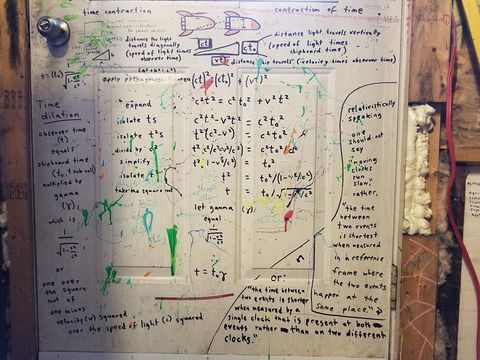 time contraction
contraction of time
distance light travels vertically
(speed of light times
shipboard time)
distance the light
travels diagonally
(speed of light times
observer time)
ct
ct₀
vt
distance ship travels (velocity times observer time)
(a²+b²=c²)
apply pythagorean theorem (ct)² = (ct₀)² + (vt)²
expand c²t² = c²t₀² + v²t²
isolate ts c²t² - v²t² = c²t₀²
isolate t²s t²(c²-v²) = c²t₀²
divide by c²
simplify t²(1-v²/c²) = t₀²
isolate t² = t₀²/(1-v²/c²)
take the square root t = t₀/√1-v²/c²
let gamma (γ)
equal
1
√1-v²/c²
t = t₀γ
Time
dilation
observer time
(t)
equals
shipboard time
(t₀, t sub null)
multiplied by
gamma
(γ)
which is
1
√1-v²/c²
or
one over
the square
root of
one minus
velocity (v) squared
over the speed of light (c) squared
relativistically
speaking
one
should not
say
"moving
clocks
run
slow,"
rather,
"the time
between
two events
is shortest
when measured
in a reference
frame where
the two events
happen at the
same place,"
or:
"the time between
two events is shorter
when measured by a
single clock that is present at both
events rather than on two different
clocks."